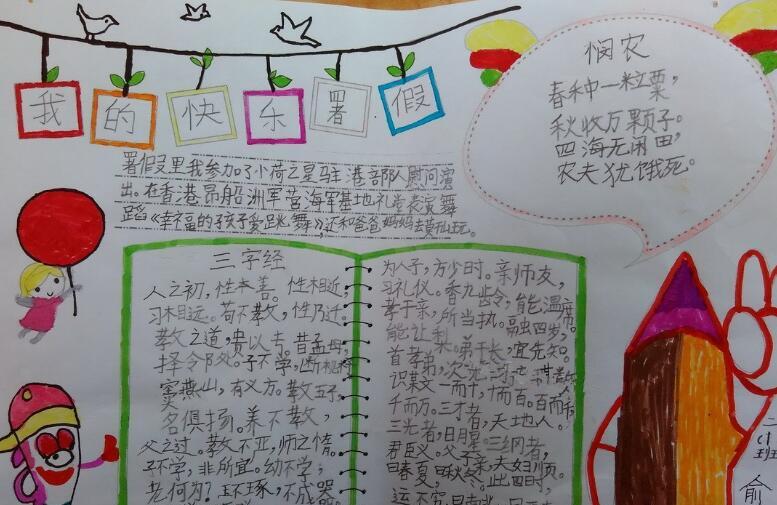 我的快乐署假
署假里我参加了小荷之星驻港部队慰问演
出。在香港昂船洲军营海军基地礼堂表演舞
蹈《幸福的孩子爱跳舞》,还和爸爸妈妈去
悯农
春种一粒粟,
秋收万颗子。
四海无闲田,
农夫犹饿死。
三字经
人之初,性本善。性相近,
习相远。苟不教,性乃迁。
教之道,贵以专。昔孟母,
择邻处。子不学,断机杼
窦燕山,有义方。教五子,
名俱扬。养不教,
父之过。教不严,师之惰。
子不学,非所宜。幼不学,
老何为?玉不琢,不成器
为人子,方少时。亲师友,
习礼仪。香九龄,能温席。
孝于亲,所当执。融四岁,
能让梨。弟于长,宜先知。
首孝弟,次
识某文。一而十,十而百。百而千
千而万。三才者,天地人。
三光者,日月星。三纲者,
君臣义。父子亲,夫妇顺。
曰春夏,曰秋冬。此四时,
运不穷。曰南北,曰
二
小
班
俞